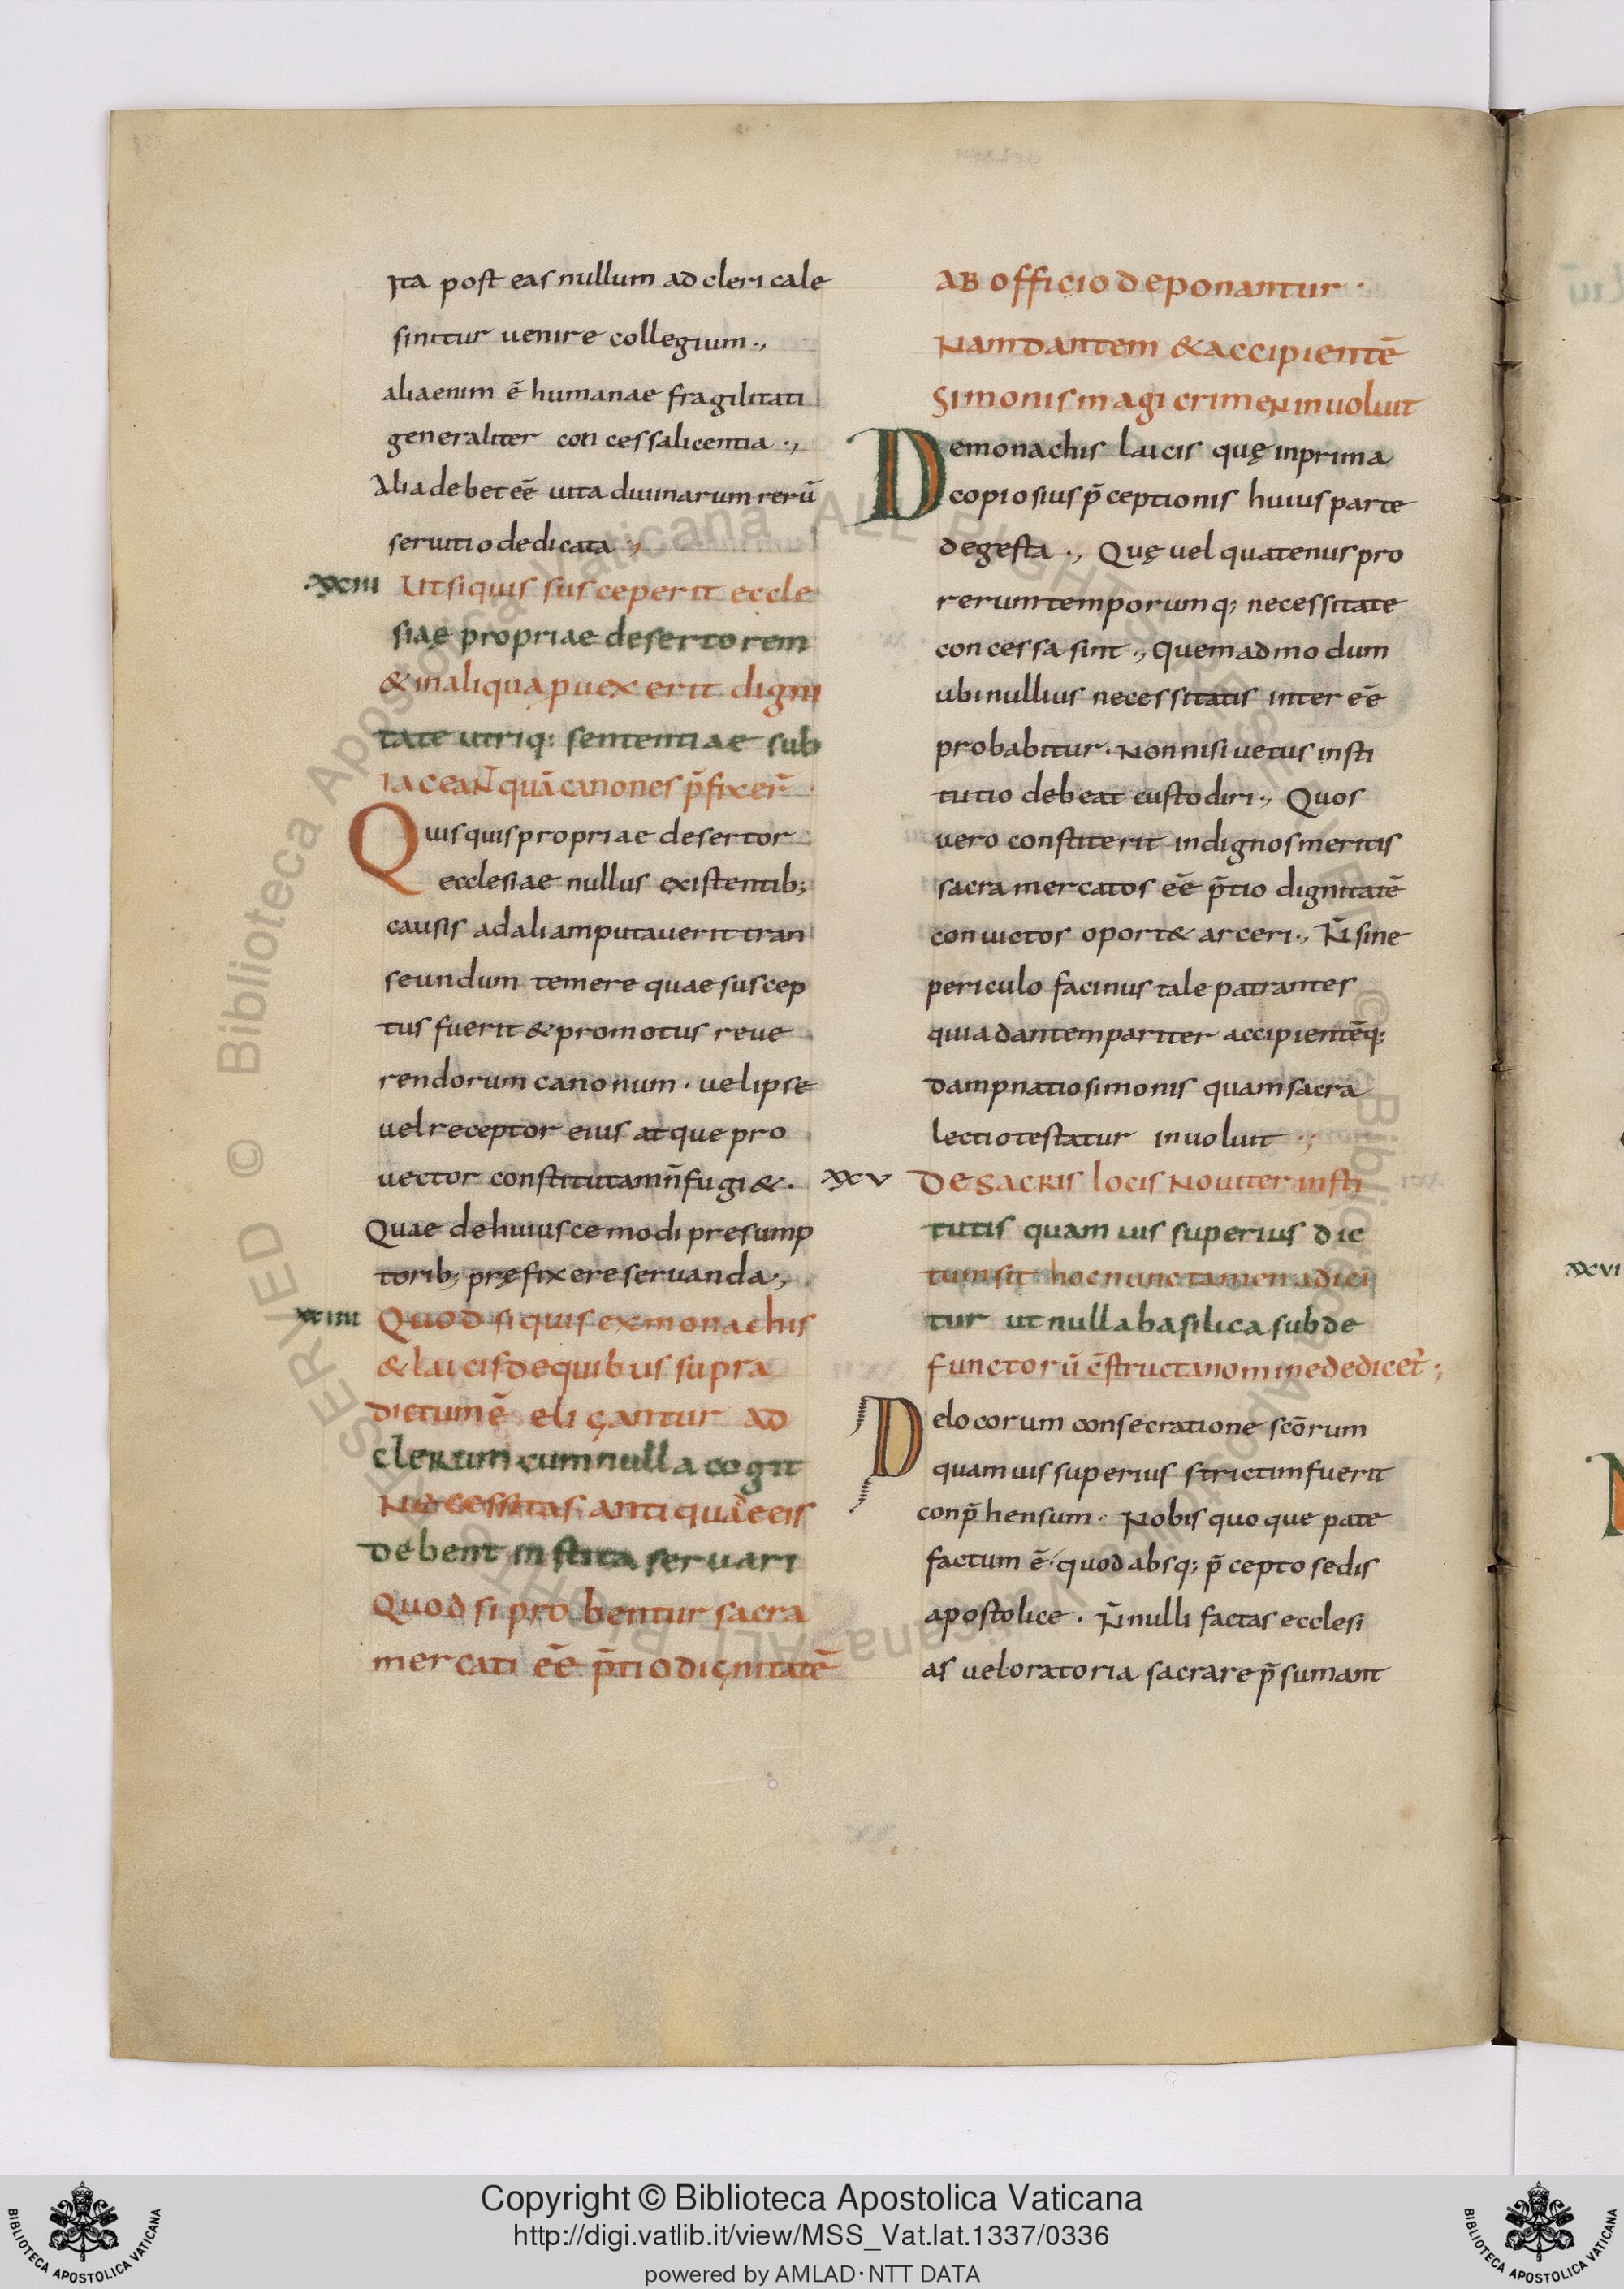 Ita post eas nullum ad clericale
sinitur uenire collegium.,
alia enim ē humanae fragilitati
generaliter concessa licentia .,
Alia debet eē uita diuinarum rerū
seruitio dedicata .,
.xxiii Ut si quis susceperit eccle
siae propriae desertorem
& in aliqua puexerit digni
tate utriq: sententiae sub
iaceaNT quā canones p̄fixer̄
Quisquis propriae desertor
ecclesiae nullus existentib;
causis ad aliam putauerit tran
seundum temere quae suscep
tus fuerit & promotus reue
rendorum canonum . uel ipse
uel receptor eius atque pro
uector constitutam n̄ fugi&.
Quae de huiuscemodi presump
torib; pręfixere seruanda.,
xxiiii Quod si quis ex monachis
& laicis de quibus supra
dictum ē eligantur ad
clerum cum nulla cogit
Necessitas antiqua ̄ ee is
debent instita seruari
Quod si probentur sacra
mercati eē p̄tio dignitatē
AB officio deponantur .
Nam dantem & accipientē
Simonis magi crimeN inuoluit
De monachis laicis quę in prima
copiosius p̄ceptionis huius parte
degesta ., Quę uel quatenus pro
rerum temporumq; necessitate
concessa sint ., quemadmodum
ubi nullius necessitatis inter eē
probabitur. Non nisi uetus insti
tutio debeat custodiri., Quos
uero constiterit indignos meritis
sacra mercatos eē p̄tio dignitatē
conuictos oport& arceri., N̄ sine
periculo facinus tale patrantes
quia dantem pariter accipientēq;
dampnatio simonis quam sacra
lectio testatur inuoluit .,
xxv De sacris locis Nouiter insti
tutis quamuis superius dic
tum sit hoc nunc tamen adici
tur ut nulla basilica sub de
functorū c̄structa nomine dedicet̄ ;
De locorum consecratione scōrum
quamuis superius strictim fuerit
conp̄hensum . Nobis quoque pate
factum ē . quod absq; p̄cepto sedis
apostolice . N̄nulli factas ecclesi
as uel oratoria sacrare p̄sumant
xxvi
© Biblioteca Apostolica Vaticana ALL RIGHTS RESERVED © Biblioteca Apostolica Vaticana ALL RIGHTS RESERVED
Copyright © Biblioteca Apostolica Vaticana
http://digi.vatlib.it/view/MSS_Vat.lat.1337/0336
powered by AMLAD·NTT DATA
BIBLIOTECA APOSTOLICA VATICANA
BIBLIOTECA APOSTOLICA VATICANA